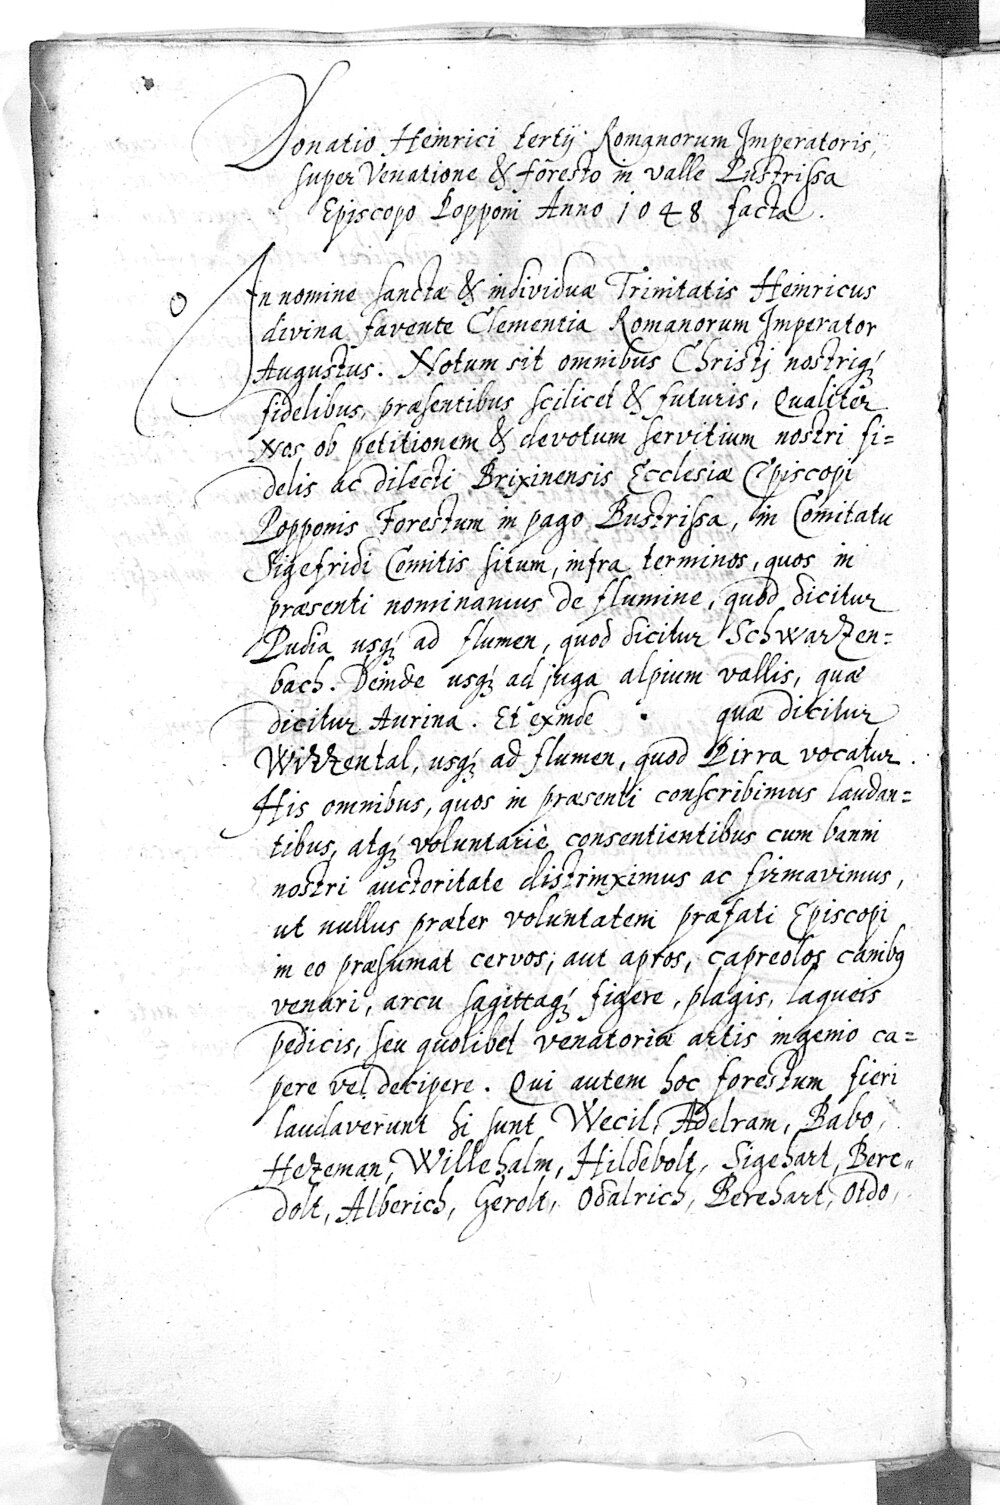 Donatio Heinrici tertij Romanorum Imperatoris,
super Venatione & foresto in valle Pustrissa
Episcopo Popponi Anno 1048 facta.
In nomine sanctæ & individuæ Trinitatis Heinricus
divina favente Clementia Romanorum Imperator
Augustus. Notum sit omnibus Christj nostriq́
fidelibus, præsentibus scilicet & futuris, Qualiter
Nos ob petitionem & devotum servitium nostri fi=
delis ac dilecti Brixinensis Ecclesiæ Episcopi
Popponis Forestum in pago Bustrissa, in Comitatu
Sigefridi Comitis situm, infra terminos, quos in
præsenti nominamus de flumine, quod dicitur
Pudia usq́ ad flumen, quod dicitur Schwartzen=
bach. Deinde usq́ ad juga alpium vallis, quæ
dicitur Aurina. Et exinde · quæ dicitur
Wizzental, usq́ ad flumen, quod Pirra vocatur.
His omnibus, quos in præsenti conscribimus laudan=
tibus, atq́ voluntariè consentientibus cum banni
nostri auctoritate distrinximus ac firmavimus,
ut nullus præter voluntatem præfati Episcopi
in eo præsumat cervos, aut apros, capreolos canibꝰ
venari, arcu sagittaq́ figere, plagis, laqueis
pedicis, seu quolibet venatoriæ artis ingenio ca=
pere vel decipere. Qui autem hoc forestum fieri
laudaverunt hi sunt Wecil, Adelram, Babo,
Hezeman, Willehalm, Hildebolt, Sigehart, Berc=
dolt, Alberich, Gerolt, Odalrich, Berehart, Otdo,